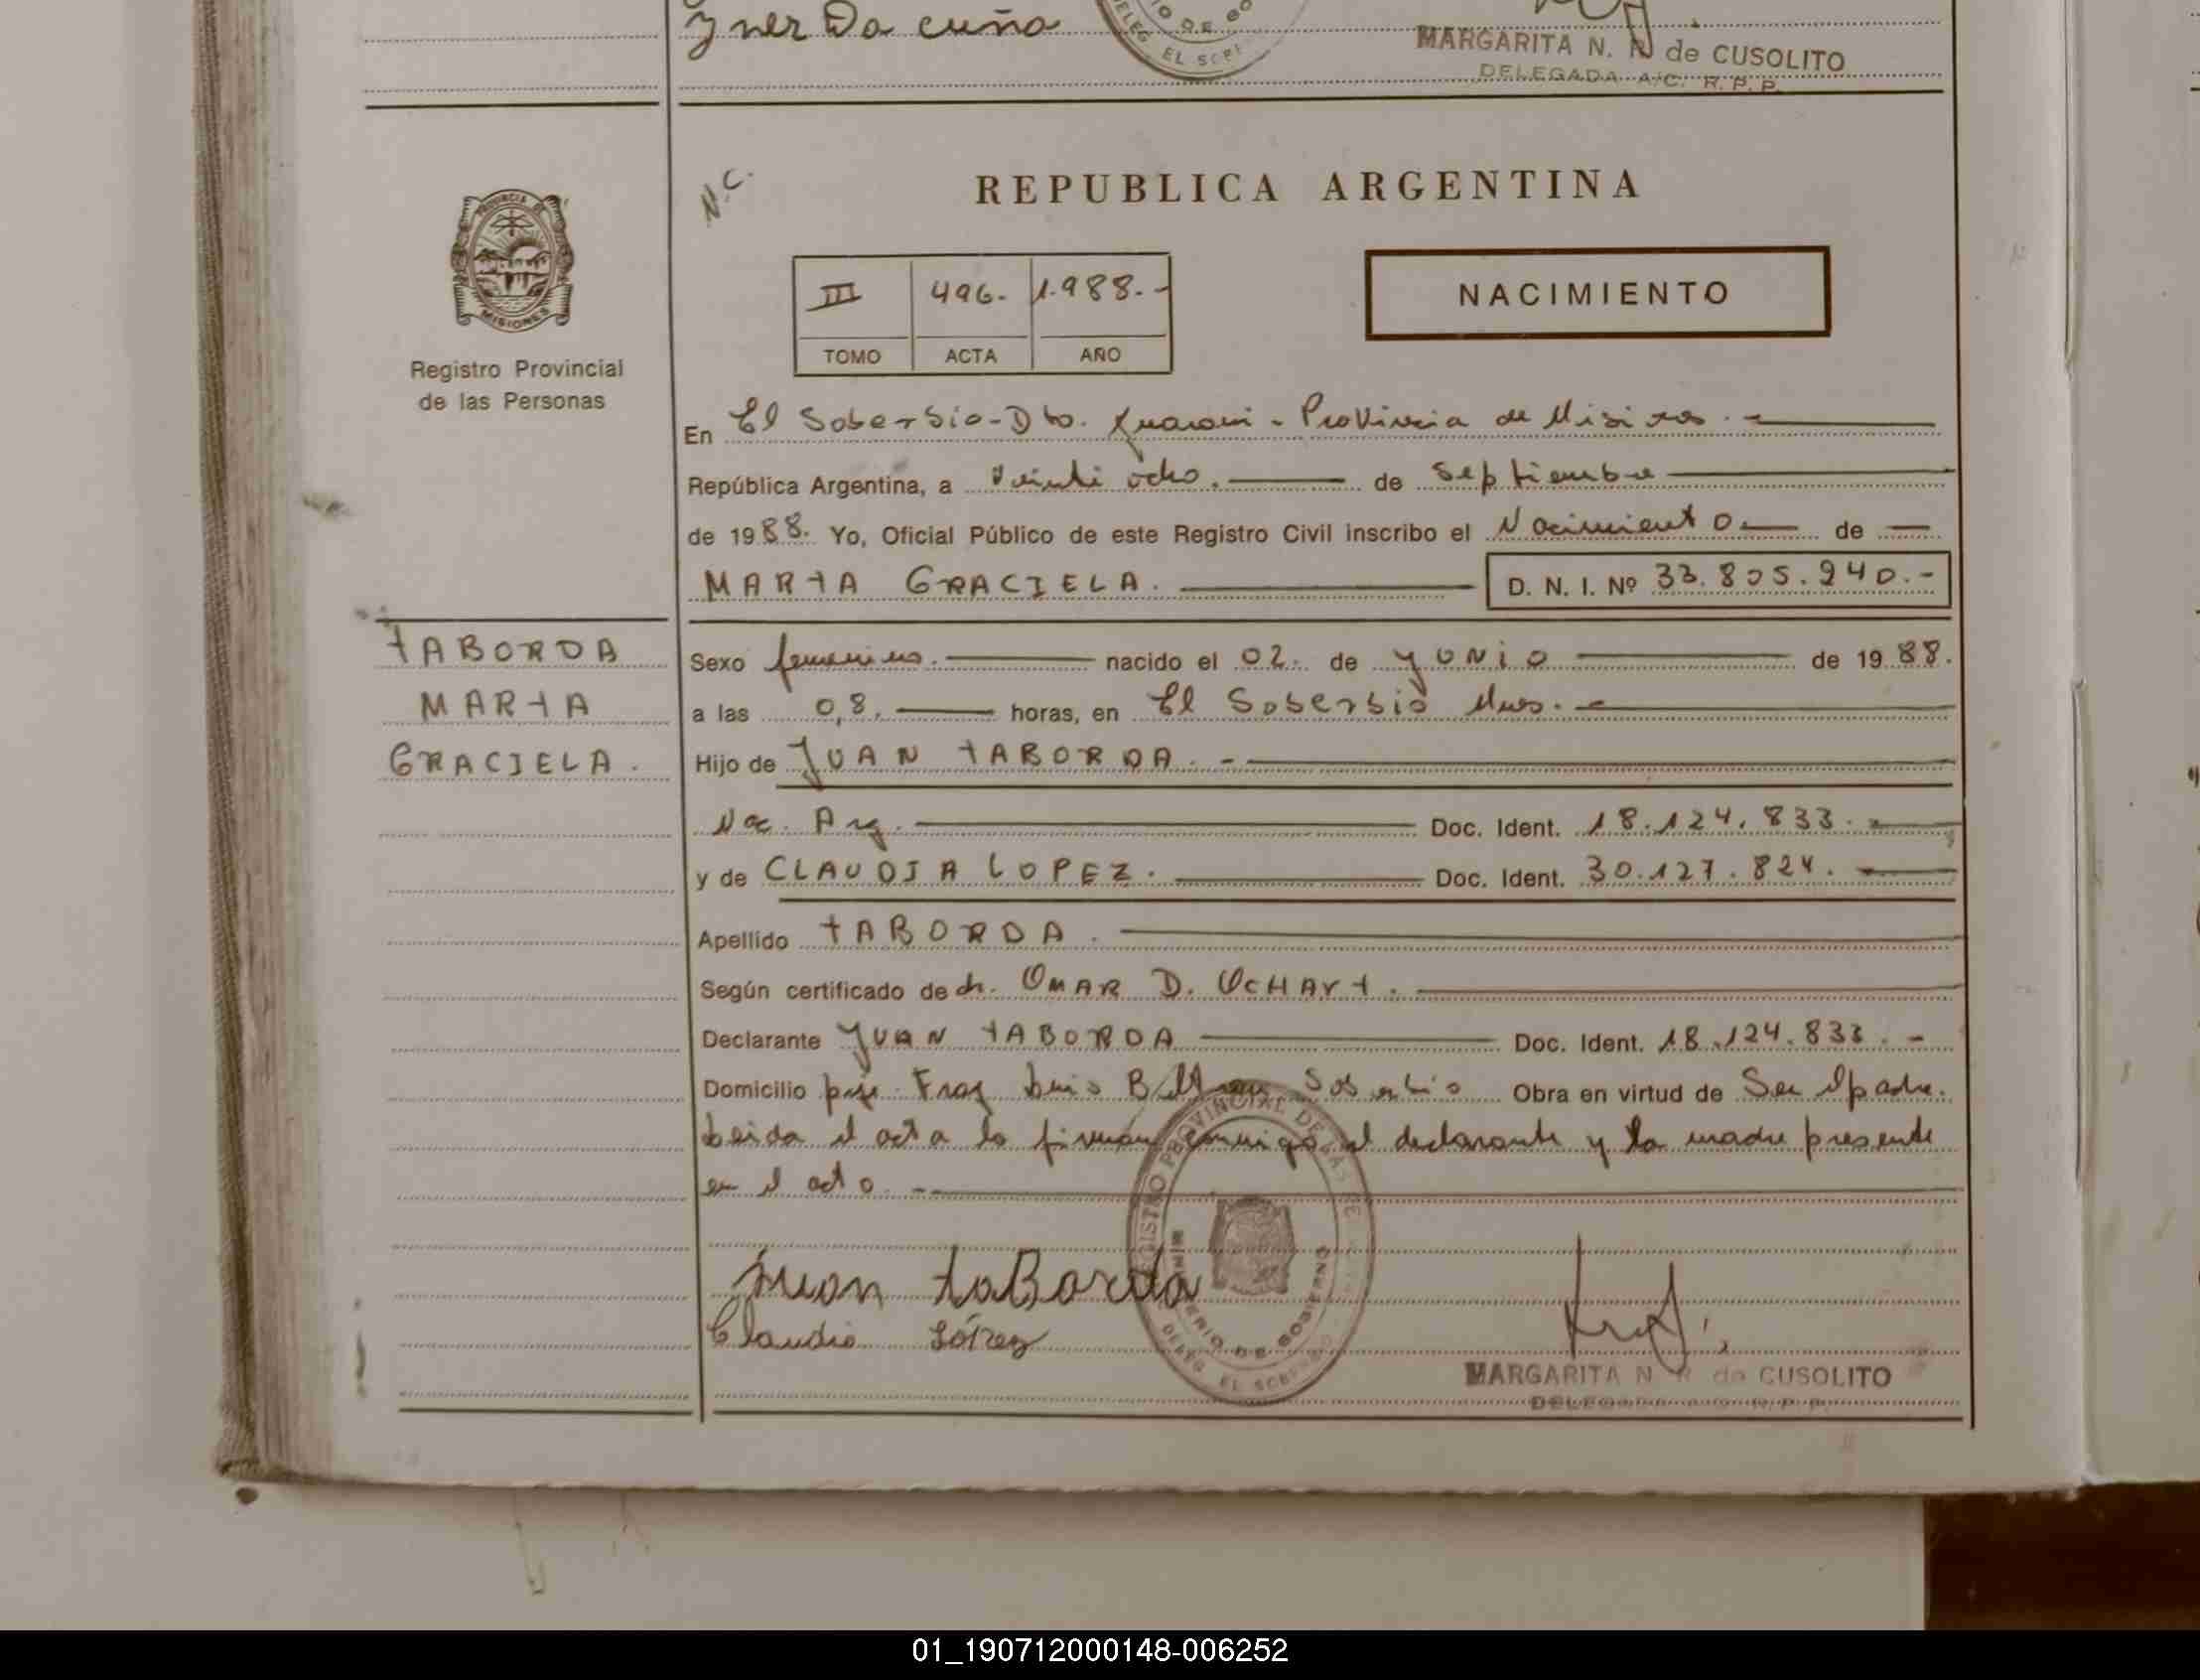 Yner Da cuña
MARGARITA N. R de CUSOLITO
DELEGADA A/C. R. P. P.
N.C.
REPUBLICA ARGENTINA
PROVINCIA DE
MISIONES
Registro Provincial
de las Personas
III 496. 1.988.-
TOMO ACTA AÑO
NACIMIENTO
En El Soberbio-Dto. Guarani - Provincia de Misiones.-
República Argentina, a Veinti ocho. de Septiembre
de 1988. Yo, Oficial Público de este Registro Civil inscribo el Nacimiento.- de
MARIA GRACIELA. D. N. I. Nº 33.805.240.-
TABORDA
MARIA
GRACIELA.
Sexo femenino. nacido el 02. de yunio de 1988.
a las 0,8. horas, en El Soberbio Mnes.-
Hijo de JUAN TABORDA.-
Nac. Arg. Doc. Ident. 18.124.833.-
y de CLAUDIA LOPEZ. Doc. Ident. 30.127.824.
Apellido TABORDA.
Según certificado de dr. OMAR D. OCHART.
Declarante JUAN TABORDA Doc. Ident. 18.124.833.-
Domicilio pje. Fray Luis Beltran Soberbio Obra en virtud de Ser el padre.
Leida el acta la firman conmigo el declarante y la madre presente
en el acto.-
Juan taBorda
Claudia López
REGISTRO PROVINCIAL DE LAS PE
MINISTERIO DE GOBIERNO
DELEG. EL SOBERBIO
MARGARITA N R de CUSOLITO
DELEGADA A/C. R. P. P.
01_190712000148-006252